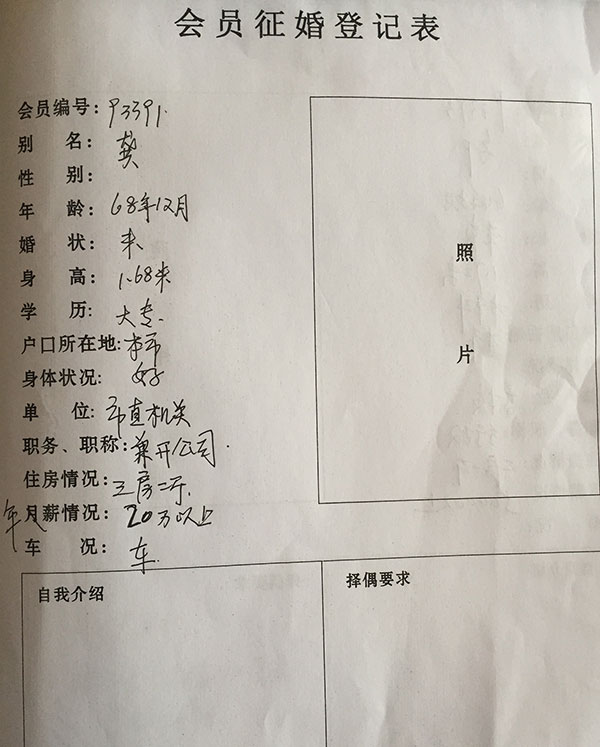 会员征婚登记表
会员编号：93391.
别 名：龚
性 别：
年 龄：68年12月
婚 状：未
身 高：1.68米
学 历：大专.
户口所在地:本市
身体状况: 好
单 位:市直机关
职务、职称:兼开公司.
住房情况:三房二厅.
年人月薪情况:20万以上
车 况:车.
照
片
自我介绍
择偶要求